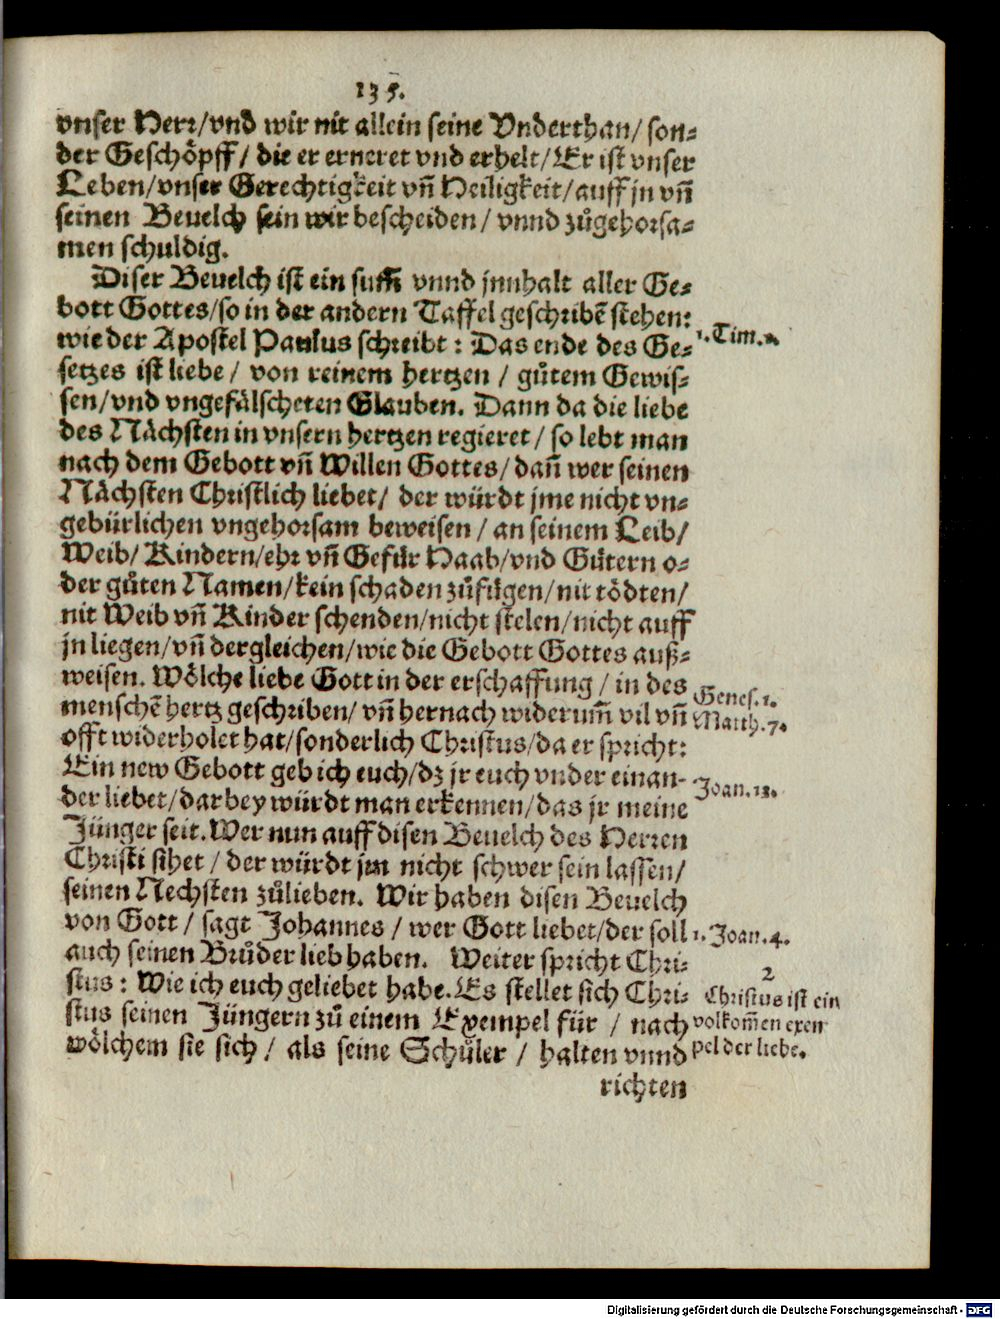 135.
vnser Herr/vnd wir nit allein seine Vnderthan/ son⸗
der Geschöpff/ die er erneret vnd erhelt/ Er ist vnser
Leben/vnser Gerechtigkeit vñ Heiligkeit/auff jn vñ
seinen Beuelch sein wir bescheiden/ vnnd zůgehorsa⸗
men schuldig.
Diser Beuelch ist ein sum̃ vnnd jnnhalt aller Ge⸗
bott Gottes/so in der andern Taffel geschribẽ stehen:
wie der Apostel Paulus schreibt: Das ende des Ge⸗
1. Tim. 1.
setzes ist liebe/ von reinem hertzen/ gůtem Gewis⸗
sen/vnd vngefälscheten Glauben. Dann da die liebe
des Nächsten in vnsern hertzen regieret/ so lebt man
nach dem Gebott vñ Willen Gottes/ dañ wer seinen
Nächsten Christlich liebet/ der würdt jme nicht vn⸗
gebürlichen vngehorsam beweisen/ an seinem Leib/
Weib/ Kindern/ehr vñ Gefür Haab/vnd Gůtern o⸗
der gůten Namen/kein schaden zůfůgen/nit tödten/
nit Weib vñ Kinder schenden/nicht stelen/nicht auff
jn liegen/vñ dergleichen/wie die Gebott Gottes auß⸗
weisen. Wölche liebe Gott in der erschaffung/ in des
Genes. 1.
menschẽ hertz geschriben/ vñ hernach widerum̃ vil vñ
Matth. 7.
offt widerholet hat/sonderlich Christus/da er spricht:
Ein new Gebott geb ich euch/dz jr euch vnder einan⸗
Joan. 13.
der liebet/darbey würdt man erkennen/das jr meine
Jünger seit. Wer nun auff disen Beuelch des Herren
Christi sihet/ der würdt jm nicht schwer sein lassen/
seinen Nechsten zůlieben. Wir haben disen Beuelch
von Gott/ sagt Johannes/ wer Gott liebet/der soll
1. Joan. 4.
auch seinen Brůder lieb haben. Weiter spricht Chri⸗
stus: Wie ich euch geliebet habe. Es stellet sich Chri⸗
stus seinen Jüngern zů einem Exempel für/ nach
wölchem sie sich/ als seine Schůler/ halten vnnd
2
Christus ist ein
volkom̃en exem
pel der liebe.
richten
Digitalisierung gefördert durch die Deutsche Forschungsgemeinschaft - DFG